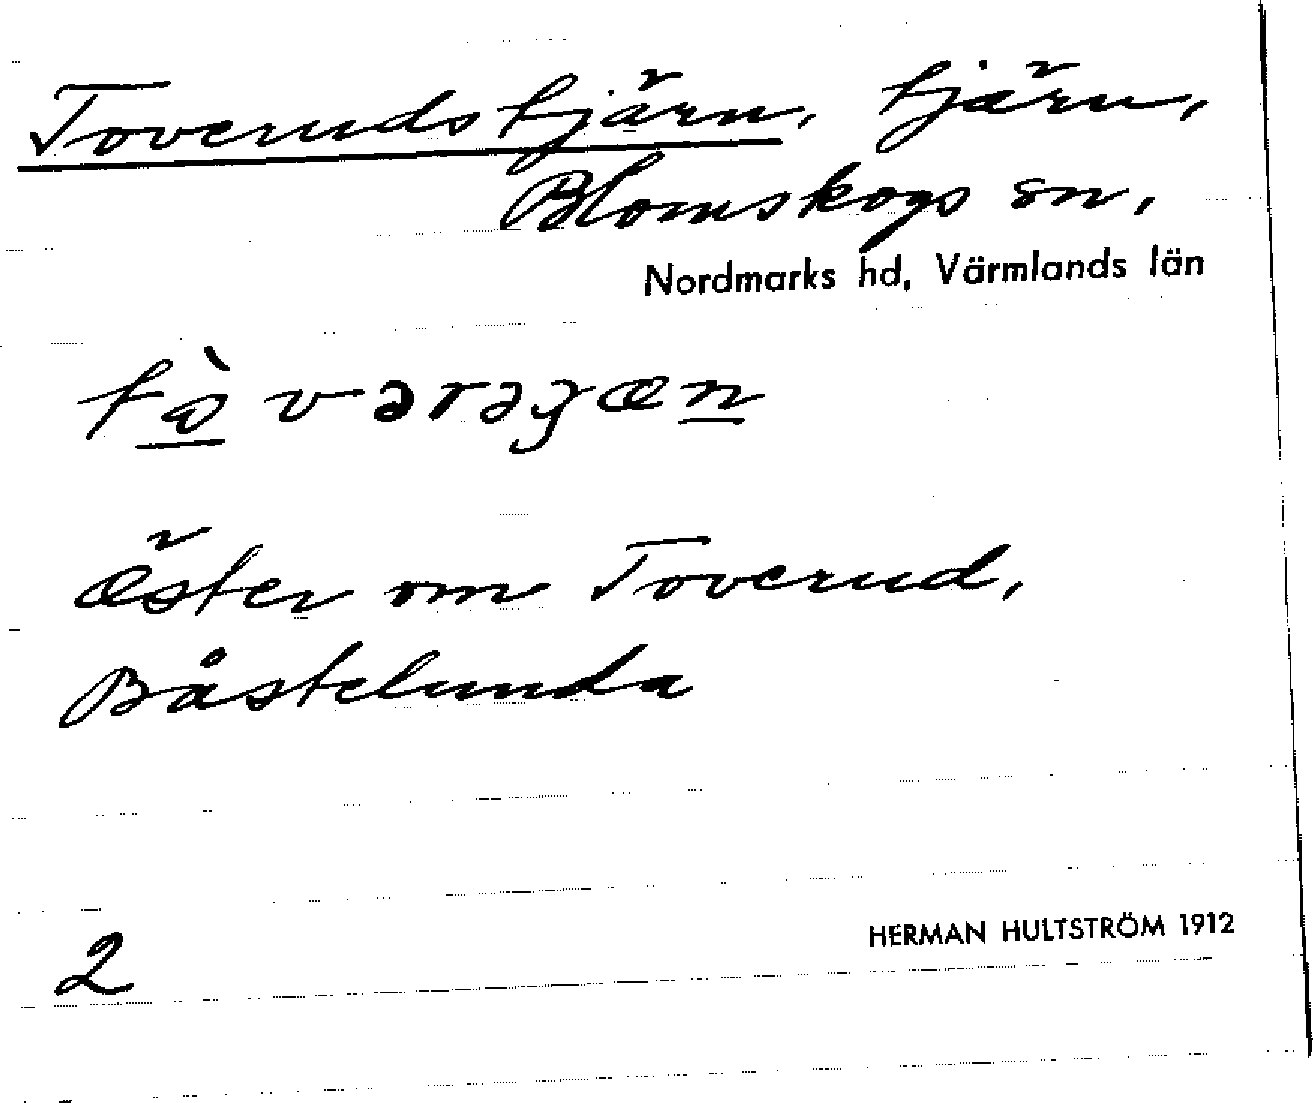 Toverudstjärn, tjärn,
Blomskogs sn,
Nordmarks hd, Värmlands län
öster om Toverud,
Båstelunda
HERMAN HULTSTRÖM 1912
2